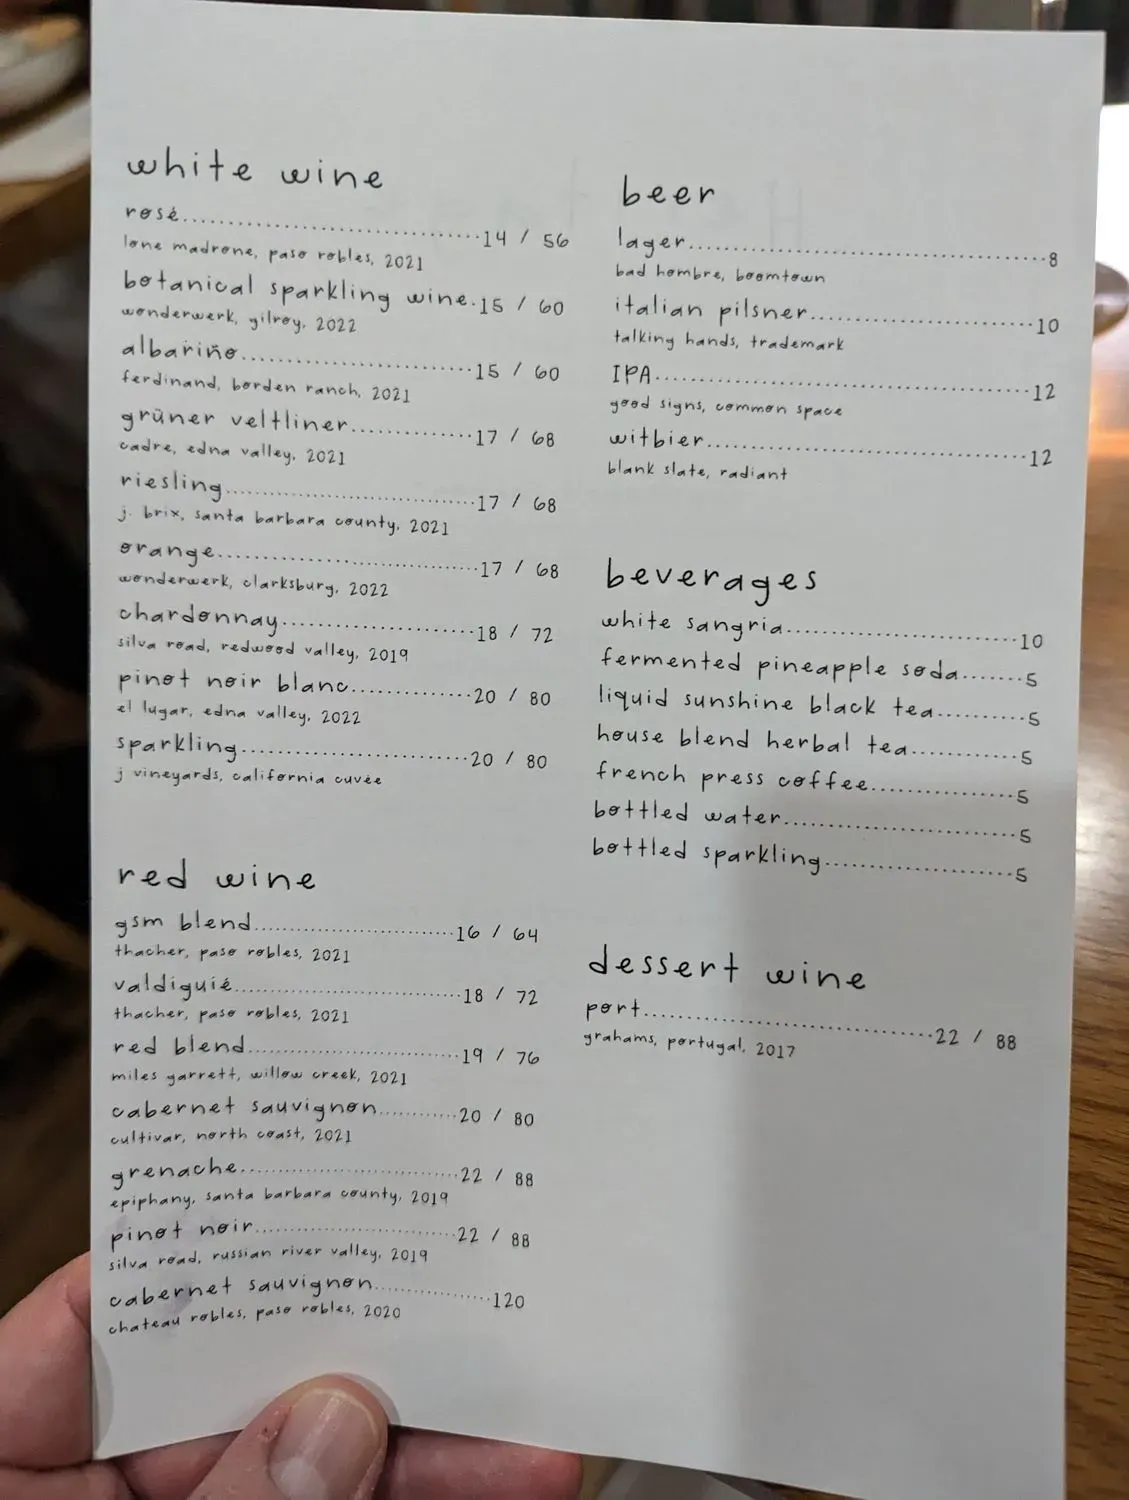 white wine
rosé.............................14 / 56
lone madrone, paso robles, 2021
botanical sparkling wine.15 / 60
wonderwerk, gilroy, 2022
albariño.........................15 / 60
ferdinand, borden ranch, 2021
grüner veltliner.............17 / 68
cadre, edna valley, 2021
riesling..........................17 / 68
j. brix, santa barbara county, 2021
orange...........................17 / 68
wonderwerk, clarksburg, 2022
chardonnay....................18 / 72
silva road, redwood valley, 2019
pinot noir blanc.............20 / 80
el lugar, edna valley, 2022
sparkling........................20 / 80
j vineyards, california cuvée
red wine
gsm blend......................16 / 64
thacher, paso robles, 2021
valdiguié........................18 / 72
thacher, paso robles, 2021
red blend.......................19 / 76
miles garrett, willow creek, 2021
cabernet sauvignon..........20 / 80
cultivar, north coast, 2021
grenache........................22 / 88
epiphany, santa barbara county, 2019
pinot noir......................22 / 88
silva road, russian river valley, 2019
cabernet sauvignon.............120
chateau robles, paso robles, 2020
beer
lager....................................8
bad hombre, boomtown
italian pilsner.......................10
talking hands, trademark
IPA......................................12
good signs, common space
witbier.................................12
blank slate, radiant
beverages
white sangria.......................10
fermented pineapple soda.......5
liquid sunshine black tea.........5
house blend herbal tea...........5
french press coffee...............5
bottled water.......................5
bottled sparkling...................5
dessert wine
port...............................22 / 88
grahams, portugal, 2017